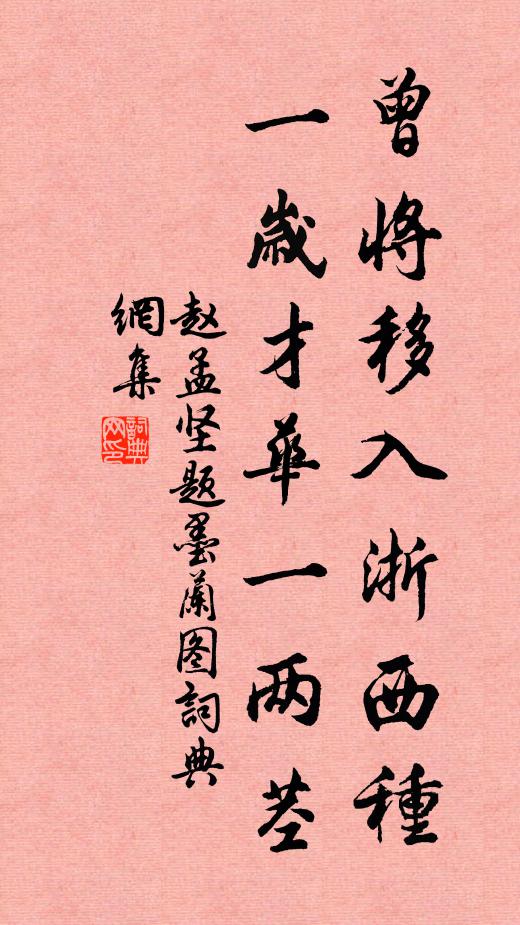 曾將移入浙西種
一歲才華一两茎
赵孟坚题墨蘭图詞典
網集
詞典网印